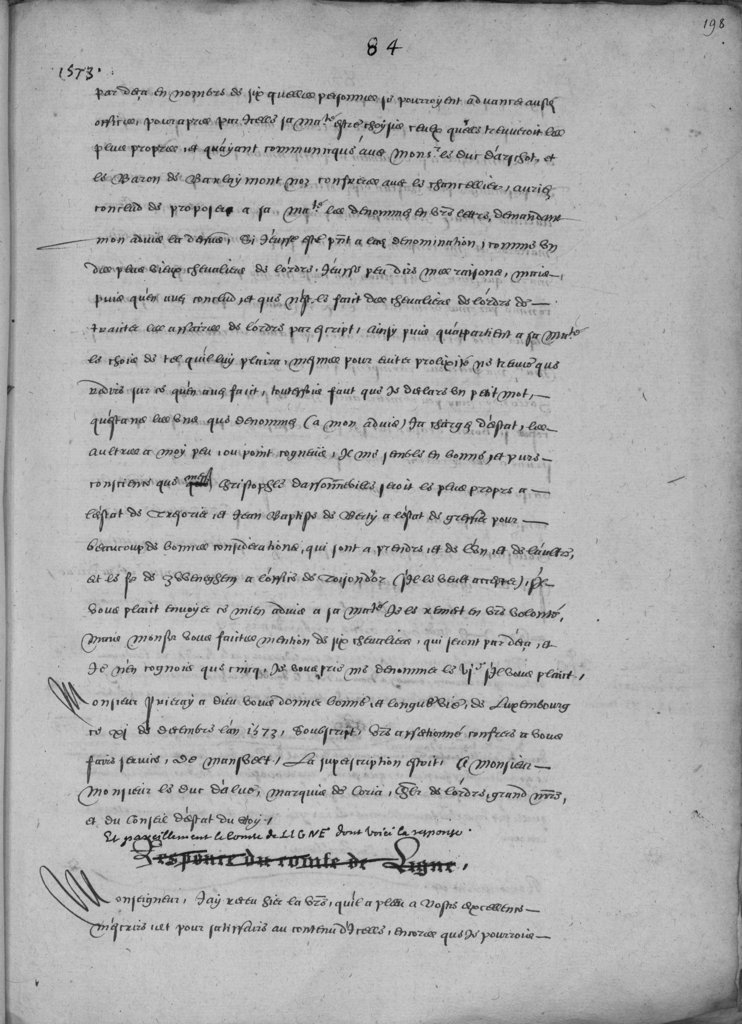 198
84
1573.
par deça en nombre de six quelles personnes se pourroyent advancer ausd.
offices, pour apres par icelle sa Ma.té estre choysie ceulx qu'elle trouveroit les
plus propres, et qu'ayant communicqué avec Mons.r le duc d'Arschot, et
le Baron de Barlaymont noz confreres avec le chancellier, auriez
conclud de proposer a sa Ma.té les denommez en vre lettre, demandant
mon advis la dessus, Si j'eusse esté pnt a lad. denomination, comme un
des plus vieux chevaliers de l'ordre, j'eusse peu dire mes raisons, mais
puis qu'en avez conclud, et que n'est le fait des chevaliers de l'ordre de
traiter les affaires de l'ordre par escript, ainsy puis qu'apartient a sa Ma.té
le chois de tel qu'il luy plaira, mesmes pour eviter prolixité ne treuve que
redire sur ce qu'en avez faict, toutesfois faut que je declare un petit mot,
qu'estans les uns que denommez (a mon advis) ja chargez d'estat, les
aultres a moy peu, ou point cogneuz, Il me semble en bonne, et pure
conscience que mess.e Christophle d'Assonneville seroit le plus propre a
l'estat de Tresorier, et Jean Baptiste de Berty a l'estat de greffier pour
beaucoup de bonnes considerations, qui sont a prendre, et de l'un, et de l'aultre,
et le sr de Zweveghem a l'office de Toison d'or (s'il le veult accepter), S'il
vous plait envoyer ce mien advis a sa Ma.té Je le remect en vre volonté,
Mais Mons.r vous faittes mention de six chevaliers, qui seront par deça, et
Je n'en cognois que cincq, Je vous prie me denommer le vj.e s'il vous plaict,
Monsieur Prieray a dieu vous donner bonne, et longue vie, de Luxembourg
ce xj de decembre l'an 1573, Soubscript, vre affectionné confrere a vous
faire service, De Mansvelt, La superscription estoit, A Monsieur
Monsieur le duc d'Alve, Marquis de Coria, Chlr de l'ordre, grand mre,
et du Conseil d'estat du Roy,
Et pareillement le Comte de LIGNE dont voici la response.
Responce du comte de Ligne,
Monseigneur, J'ay receu hier la vre, qu'il a pleu a Vostre excellence
m'escrire, et pour satisfaire au contenu d'icelle, encores que je pourrois